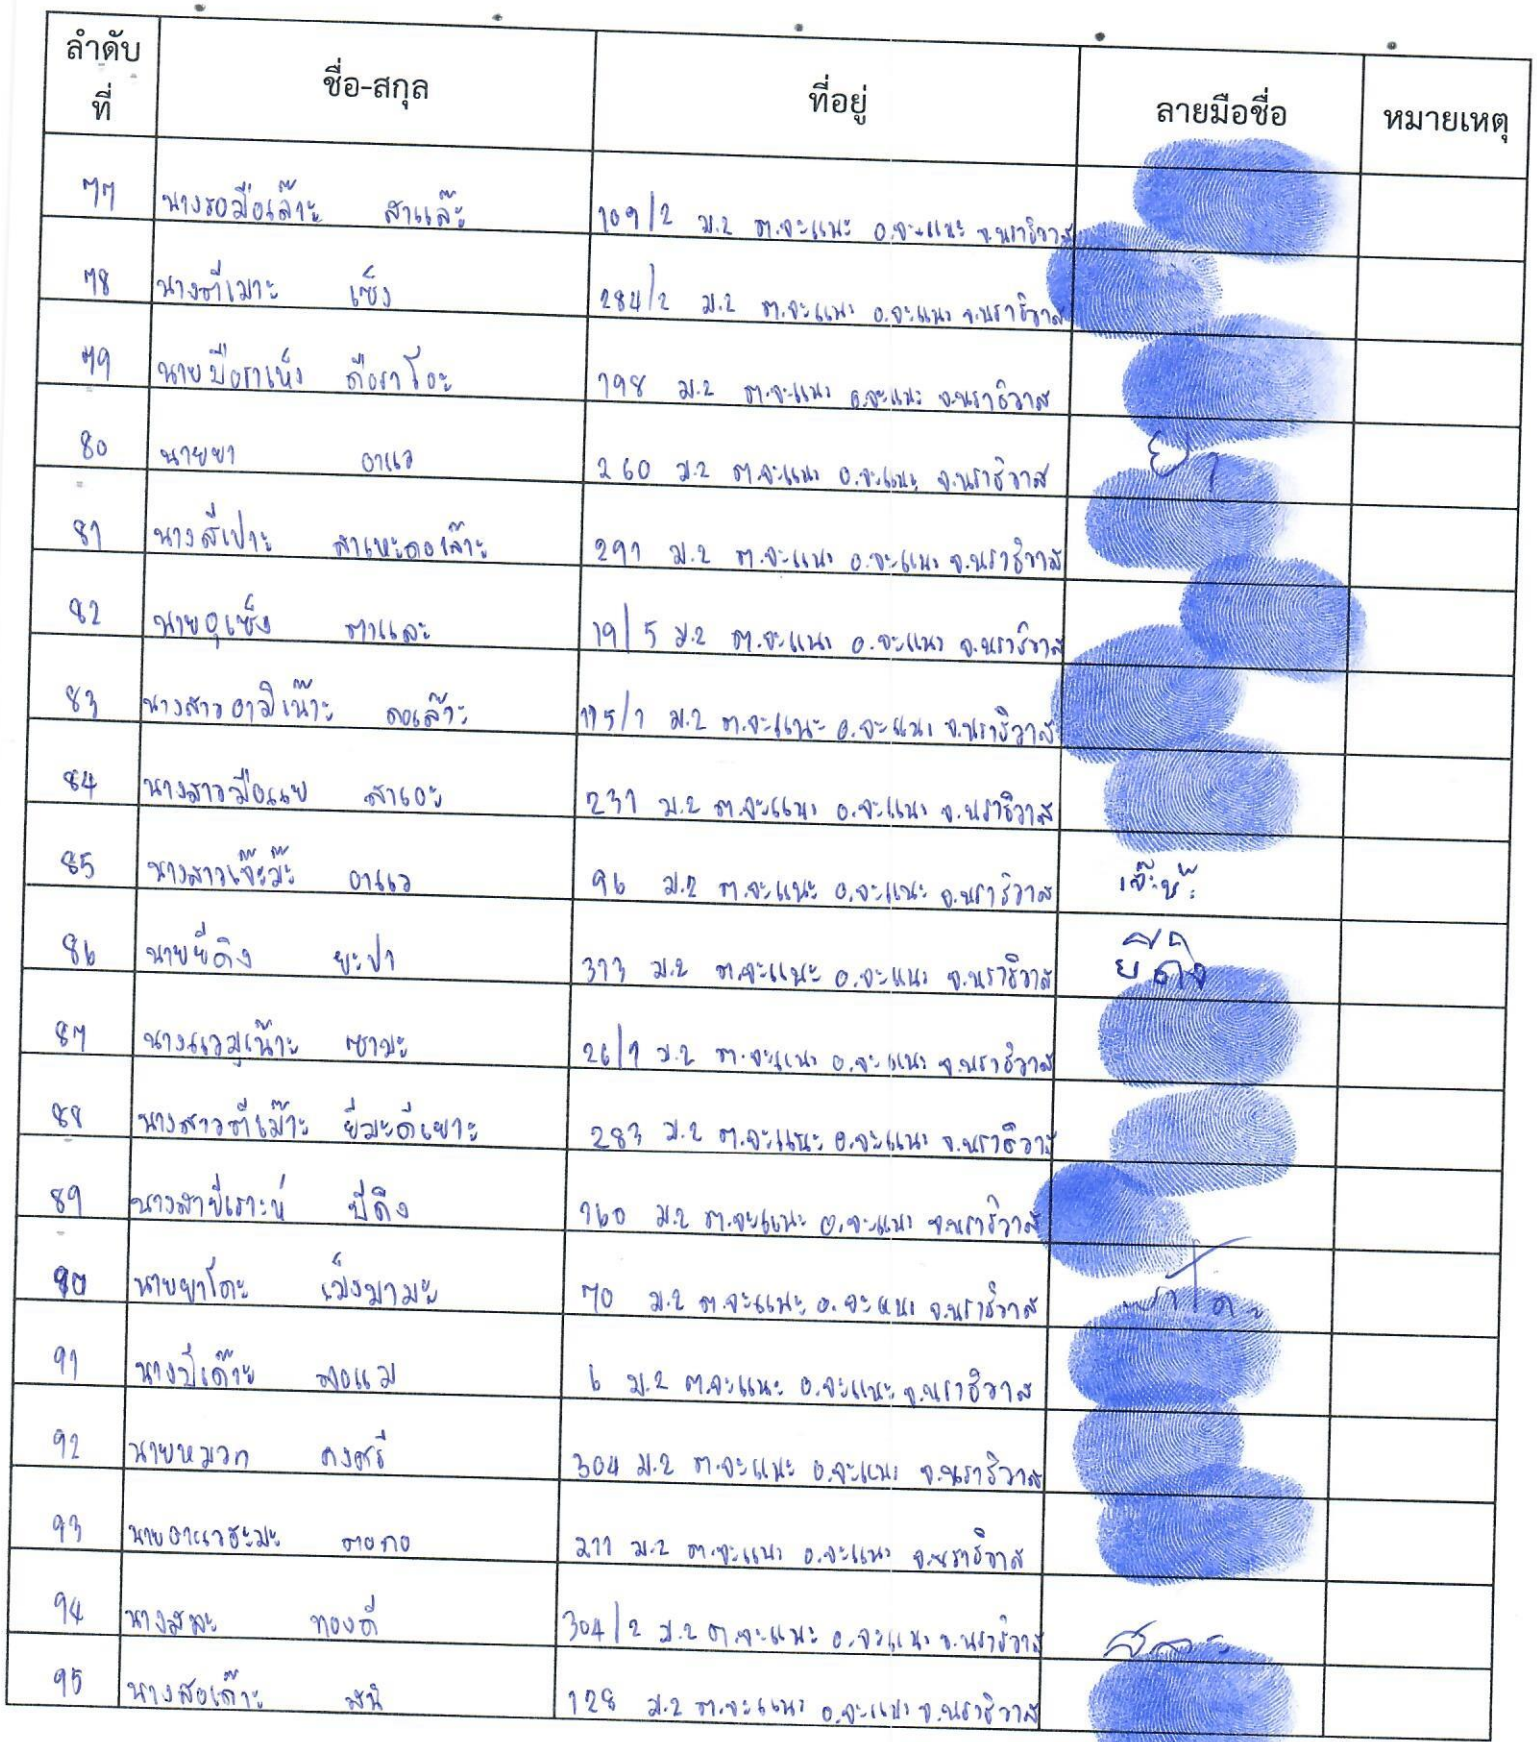 ลำดับที่ ชื่อ-สกุล ที่อยู่ ลายมือชื่อ หมายเหตุ
77 นางรอมือเล๊าะ สาแล๊ะ 109/2 ม.2 ต.จะแนะ อ.จะแนะ จ.นราธิวาส
78 นางตีเมาะ เซ็ง 284/2 ม.2 ต.จะแนะ อ.จะแนะ จ.นราธิวาส
79 นายบือราเห็ง ดือราโอะ 198 ม.2 ต.จะแนะ อ.จะแนะ จ.นราธิวาส
80 นายยา อาแว 260 ม.2 ต.จะแนะ อ.จะแนะ จ.นราธิวาส ยา
81 นางสีเปาะ สาเหะดอเล๊าะ 291 ม.2 ต.จะแนะ อ.จะแนะ จ.นราธิวาส
82 นายอุเซ็ง ตาและ 19/5 ม.2 ต.จะแนะ อ.จะแนะ จ.นราธิวาส
83 นางสาวอามิเน๊าะ ดอเล๊าะ 115/1 ม.2 ต.จะแนะ อ.จะแนะ จ.นราธิวาส
84 นางสาวมือแย สาเอะ 231 ม.2 ต.จะแนะ อ.จะแนะ จ.นราธิวาส
85 นางสาวเจ๊ะม๊ะ อาแว 96 ม.2 ต.จะแนะ อ.จะแนะ จ.นราธิวาส
86 นายยีดิง ยะปา 313 ม.2 ต.จะแนะ อ.จะแนะ จ.นราธิวาส ยีดิง
87 นางแวมูเน๊าะ ซามะ 26/1 ม.2 ต.จะแนะ อ.จะแนะ จ.นราธิวาส
88 นางสาวตีเม๊าะ ยีมะดีเยาะ 283 ม.2 ต.จะแนะ อ.จะแนะ จ.นราธิวาส
89 นางสายีเราะห์ บีดิง 160 ม.2 ต.จะแนะ อ.จะแนะ จ.นราธิวาส
90 นายยาโดะ เม็งมามะ 70 ม.2 ต.จะแนะ อ.จะแนะ จ.นราธิวาส
91 นางบีเด๊าะ ลอแม 6 ม.2 ต.จะแนะ อ.จะแนะ จ.นราธิวาส
92 นายหมวก คงศรี 304 ม.2 ต.จะแนะ อ.จะแนะ จ.นราธิวาส
93 นายอาแวฮะมะ ตอกอ 211 ม.2 ต.จะแนะ อ.จะแนะ จ.นราธิวาส
94 ทองดี 304/2 ม.2 ต.จะแนะ อ.จะแนะ จ.นราธิวาส
95 นางสอเด๊าะ สนิ 128 ม.2 ต.จะแนะ อ.จะแนะ จ.นราธิวาส